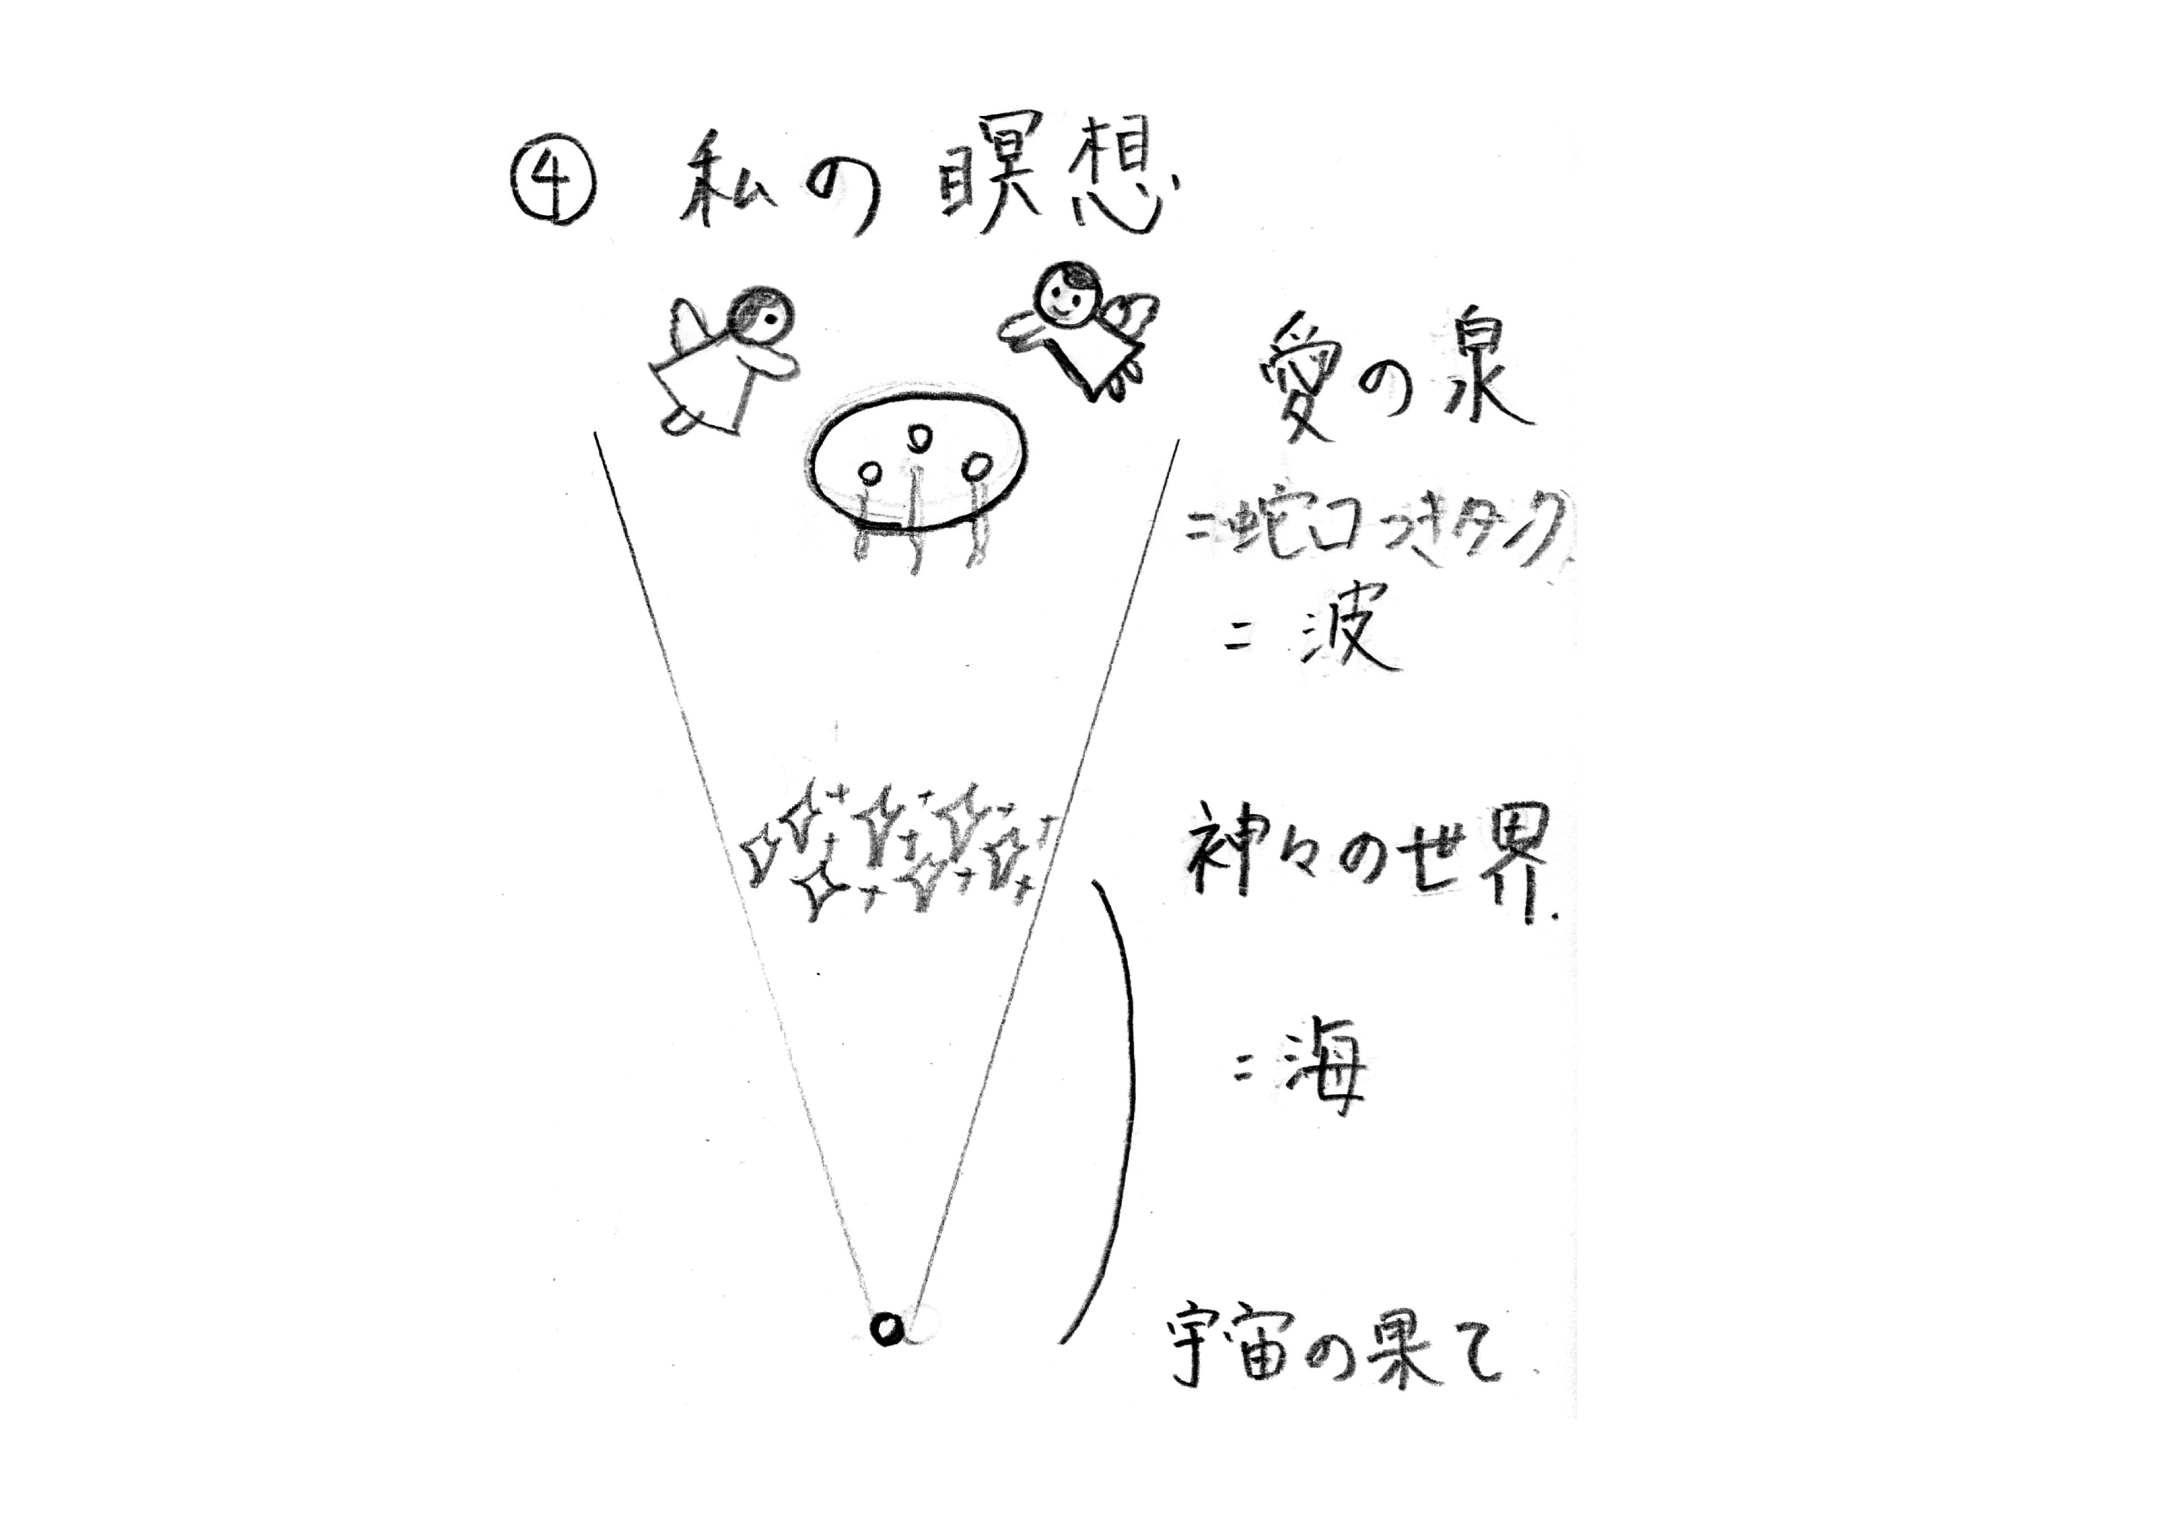 ④ 私の瞑想
愛の泉
=蛇口つきタンク
=波
神々の世界
=海
宇宙の果て